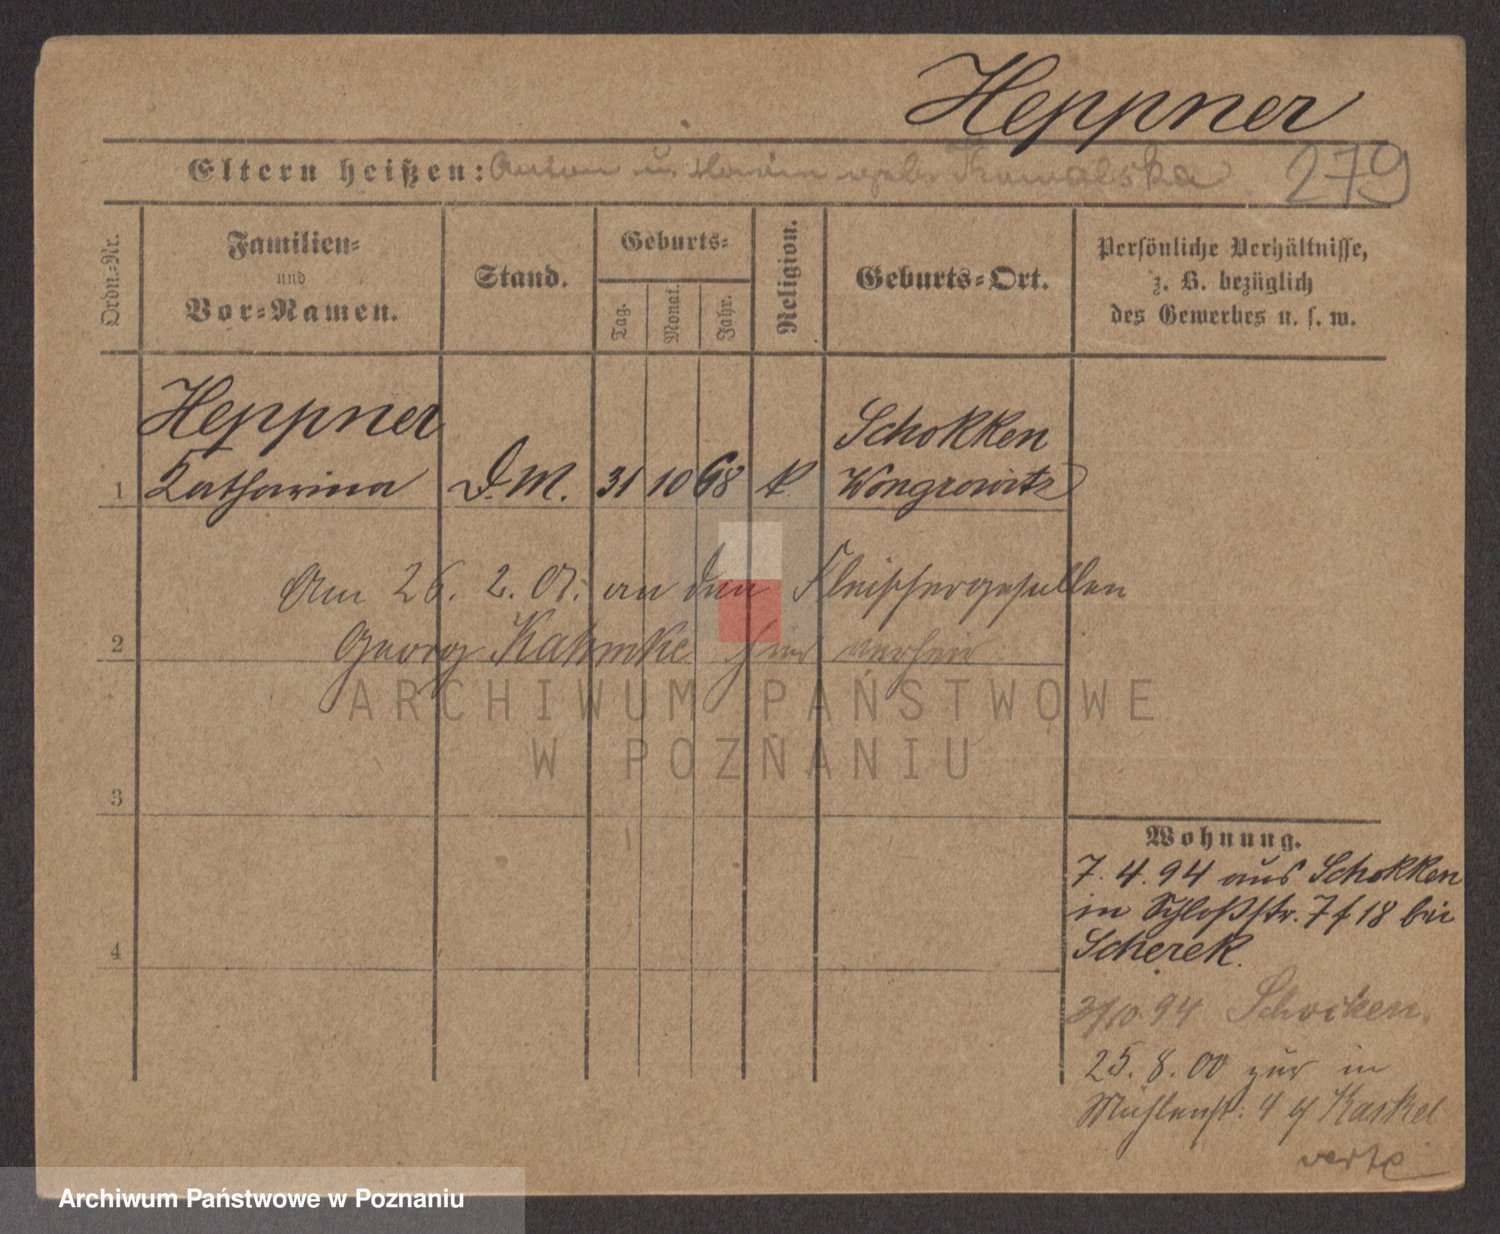 Heppner
Eltern heißen: Anton u. geb. Kowalska 279
Ordn.-Nr.
Familien-
und
Vor-Namen.
Stand.
Geburts-
Tag.
Monat.
Jahr.
Religion.
Geburts-Ort.
Persönliche Verhältnisse,
z. B. bezüglich
des Gewerbes u. s. w.
Heppner
Schokken
1 Katharina D.M. 31 10 68 k. Wongrowitz
Am 26. 2. 07. an den Fleischergesellen
2 Georg Kahmke hier verheir
ARCHIWUM PAŃSTWOWE
W POZNANIU
3
4
Wohnung.
7. 4. 94 aus Schokken
in Schloßstr. 7 f 18 bei
Scherek.
31/10. 94 Schocken.
25. 8. 00 zur in
Mühlenst. 4 Kaskel
verte
Archiwum Państwowe w Poznaniu